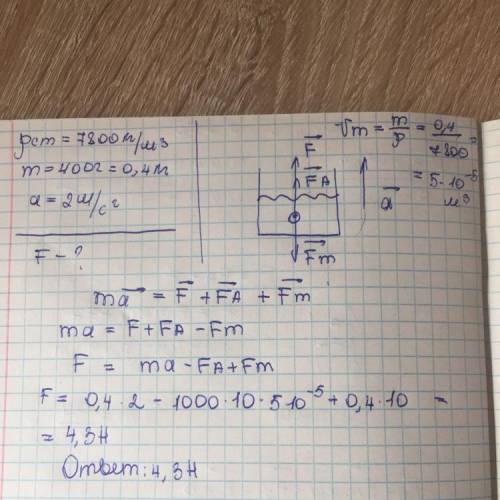 ρст = 7800 кг/м³
m = 400г = 0,4 кг
a = 2 м/с²
F - ?
Vт = m/ρ = 0,4/7800 =
= 5·10⁻⁵ м³
F⃗
F⃗A
a⃗
F⃗т
ma⃗ = F⃗ + F⃗A + F⃗т
ma = F + FA - Fт
F = ma - FA + Fт
F = 0,4·2 - 1000·10·5·10⁻⁵ + 0,4·10 =
= 4,3Н
Ответ: 4,3Н